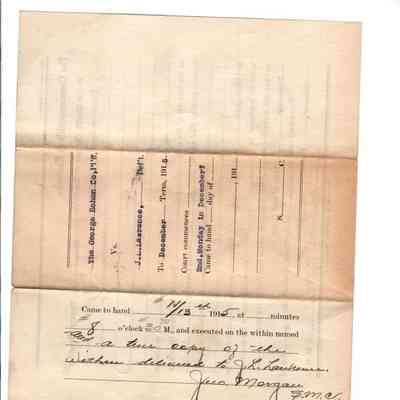 The George Bohon Co,Pl'ff.
Vs.
J.L.Lawrence, Def't.
To December Term, 1915.
Court commences
2nd.Monday in December
Came to hand day of
, 191
C.
Came to hand 11/13th 1915, at minutes
8 o'clock M., and executed on the within named
a true copy of the
within delivered to J.L. Lawrence.
Jno Morgan